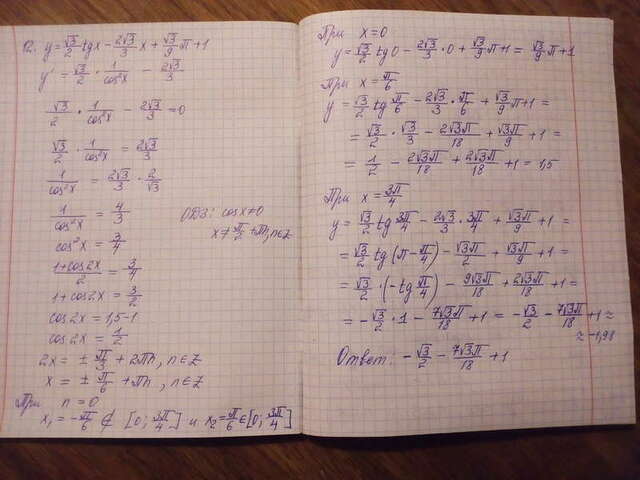 12. y = √3/2 tgx - 2√3/3 x + √3/9 π + 1
y' = √3/2 · 1/cos²x - 2√3/3
√3/2 · 1/cos²x - 2√3/3 = 0
√3/2 · 1/cos²x = 2√3/3
1/cos²x = 2√3/3 · 2/√3
1/cos²x = 4/3
ОДЗ: cosx≠0
x ≠ π/2 + πn, n∈Z
cos²x = 3/4
1+cos2x/2 = 3/4
1+cos2x = 3/2
cos2x = 1,5-1
cos2x = 1/2
2x = ± π/3 + 2πn, n∈Z
x = ± π/6 + πn, n∈Z
При n=0
x₁ = -π/6 ∉ [0; 3π/4] и x₂ = π/6 ∈ [0; 3π/4]
При x=0
y = √3/2 tg0 - 2√3/3 · 0 + √3/9 π + 1 = √3/9 π + 1
При x = π/6
y = √3/2 tg π/6 - 2√3/3 · π/6 + √3/9 π + 1 =
= √3/2 · √3/3 - 2√3π/18 + √3π/9 + 1 =
= 1/2 - 2√3π/18 + 2√3π/18 + 1 = 1,5
При x = 3π/4
y = √3/2 tg 3π/4 - 2√3/3 · 3π/4 + √3π/9 + 1 =
= √3/2 tg(π - π/4) - √3π/2 + √3π/9 + 1 =
= √3/2 · (-tg π/4) - 9√3π/18 + 2√3π/18 + 1 =
= -√3/2 · 1 - 7√3π/18 + 1 = -√3/2 - 7√3π/18 + 1 ≈
≈ -1,98
Ответ: -√3/2 - 7√3π/18 + 1